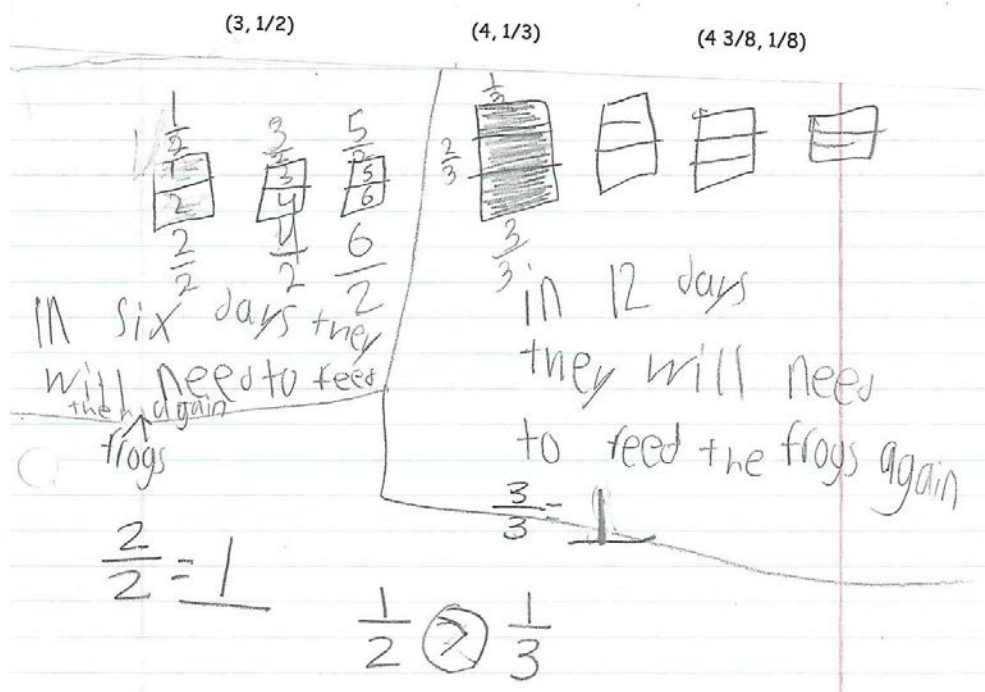 (3, 1/2) (4, 1/3) (4 3/8, 1/8)
1/2 3/2 5/2
1 3 5
2 4 6
2/2 4/2 6/2
in six days they
will need to feed
the frogs again
1/3
2/3
3/3
in 12 days
they will need
to feed the frogs again
3/3 = 1
2/2 = 1
1/2 > 1/3